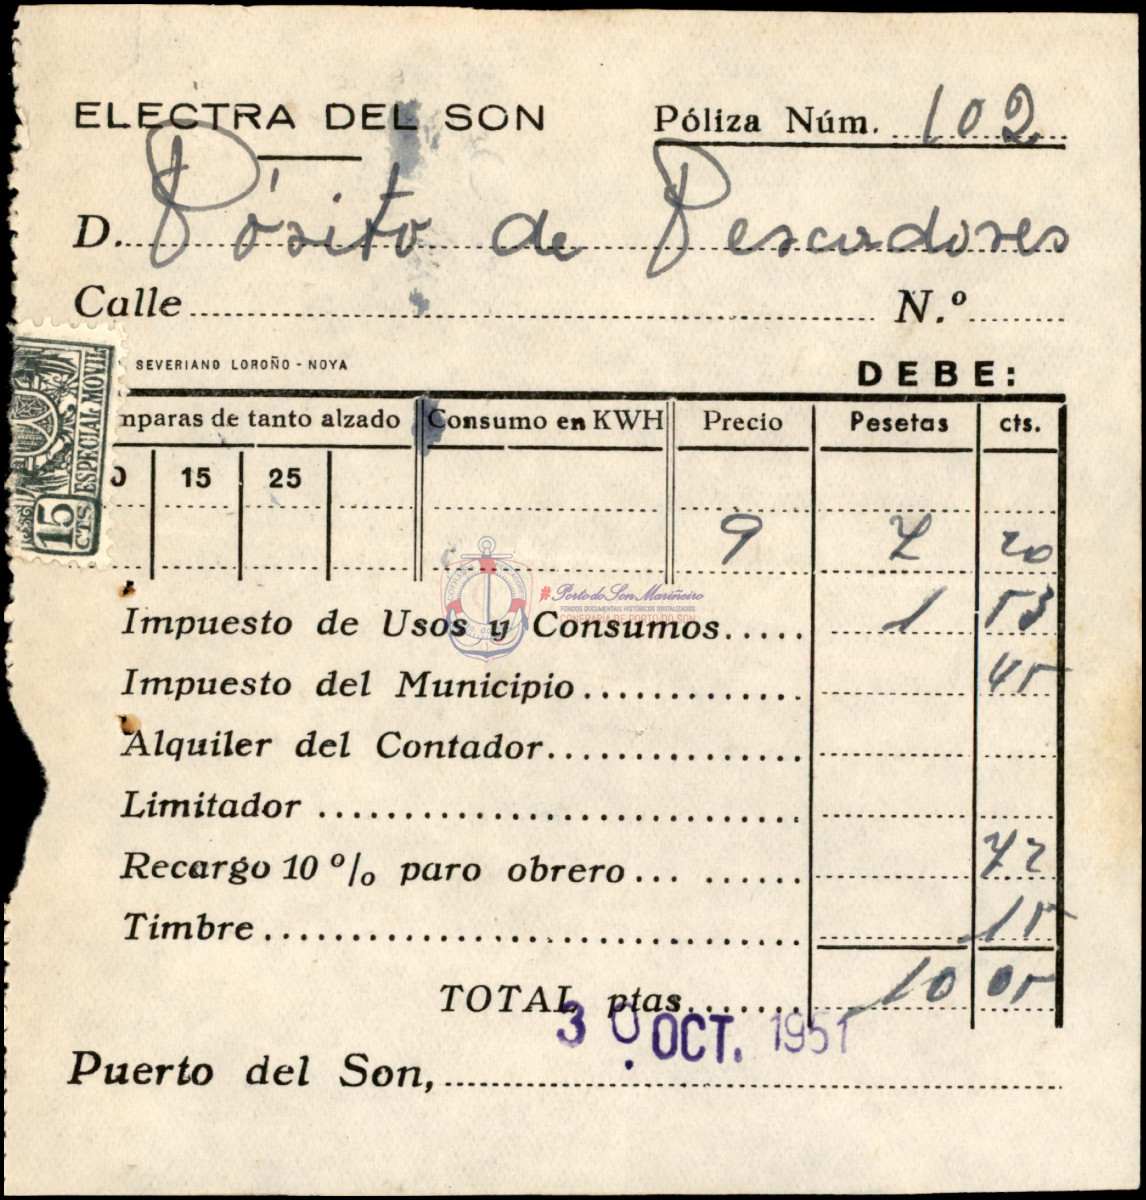 ELECTRA DEL SON
Póliza Núm. 102
D. Pósito de Pescadores
Calle N.º
SEVERIANO LOROÑO - NOYA
DEBE:
ESPECIAL MOVIL
15 CTS
mparas de tanto alzado Consumo en KWH Precio Pesetas cts.
0 15 25
9 7 20
Impuesto de Usos y Consumos..... 1 53
Impuesto del Municipio............. 45
Alquiler del Contador...............
Limitador
Recargo 10 % paro obrero... ...... 72
Timbre 15
TOTAL ptas. 10 05
30 OCT. 1951
Puerto del Son,
#Porto do Son Mariñeiro
FONDOS DOCUMENTAIS HISTÓRICOS DIXITALIZADOS
CONFRARÍA DE PORTO DO SON